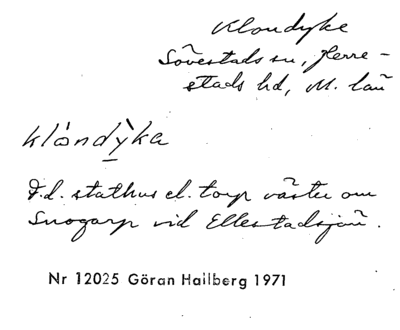 Klondyke
Sövestads sn, Herre-
stads hd, M. län
klåndỳ̱ka
F.d. stathus el. torp väster om
Snogarp vid Ellestadsjön.
Nr 12025 Göran Hallberg 1971